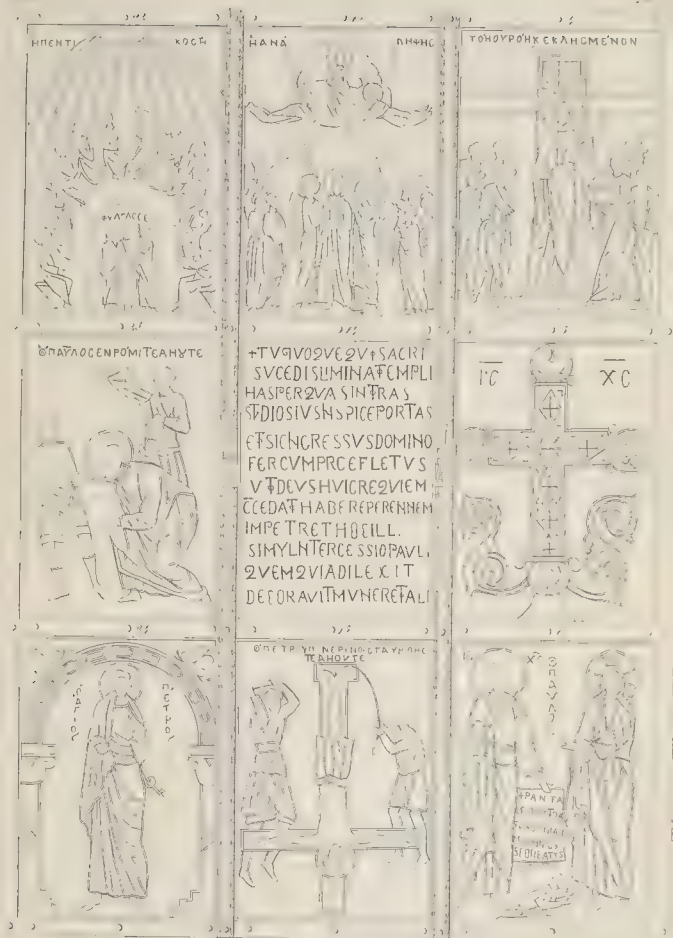 ΗΠΕΝΤΙ ΚΟСΤΗ
ΗΑΝΑ ΛΗΨΗС
ΤΟΗΟΥΡΟΗΚΕΚΛΗСΜΕΝΟΝ
ΟΠΑΥΛΟСΕΝΡΟΜΙΤΕΛΗΥΤΕ
+TVQVO2VE2VISACRI
SVCEDISLIMINATEMPLI
HASPER2VASINTRAS
STDIOSIVSNSPICEPORTAS
ETSICNGRESSVSDOMINO
FERCVMPRCEFLETVS
VTDEVSHVICRE2VIEM
CCEDATHABEREPERENNEM
IMPETRETHOEILL.
SIMYLNTERCESSIOPAVLI
2VEM2VIADILEXIT
DECORAVITMVNERETALI
IC XC
ΟΑΓΙΟС ΠΕΤΡΟС
ΤΕΛΗΟΥΤΕ
ΟΠΑΥΛΟС
+PANTA